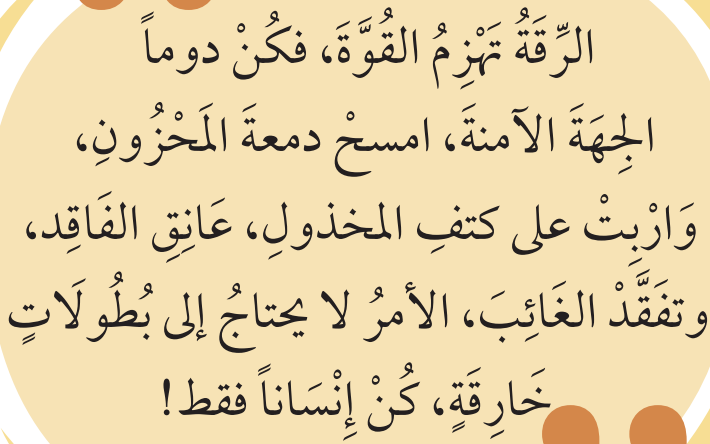 الرِّقَةُ تَهْزِمُ القُوَّةَ، فكُنْ دوماً
الجِهَةَ الآمنةَ، امسحْ دمعةَ المَحْزُونِ،
وَارْبِتْ على كتفِ المخذولِ، عَانِقِ الفَاقِد،
وتفَقَّدْ الغَائِبَ، الأمرُ لا يحتاجُ إلى بُطُولَاتٍ
خَارِقَةٍ، كُنْ إِنْسَاناً فقط!